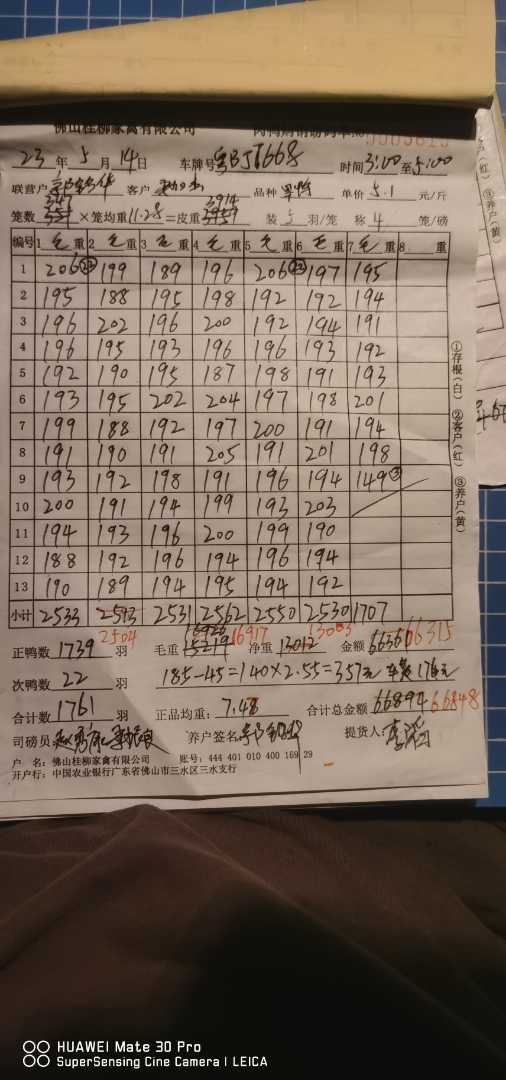 佛山桂柳家禽有限公司
23 年 5 月 14 日 车牌号 粤BJT668 时间 3:00 至 5:00
联营户 客户 品种 单价 5.1 元/斤
347 3914
笼数 354 ×笼均重 11.28 =皮重 装 5 羽/笼 称 4 笼/磅
编号 1 毛 重 2 毛 重 3 毛 重 4 毛 重 5 毛 重 6 毛 重 7 毛 重 8 重
1 206 199 189 196 206 197 195
2 195 188 195 198 192 192 194
3 196 202 196 200 192 194 191
4 196 195 193 196 196 193 192
5 192 190 195 187 198 191 193
6 193 195 202 204 197 198 201
7 199 188 192 197 200 191 194
8 191 190 191 205 191 201 198
9 193 192 198 191 196 194 149 ③
10 200 191 194 199 193 203
11 194 193 196 200 199 190
12 188 192 196 194 196 194
13 190 189 194 195 194 192
小计 2533 2513 2531 2562 2550 2530 1707
2504 16926 16917 13003 66315
正鸭数 1739 羽 毛重 净重 13012 金额
次鸭数 22 羽 185-45=140×2.55=357元 176元
合计数 1761 羽 正品均重: 7.48 合计总金额 66894 66848
司磅员 养户签名 提货人:
户 名: 佛山桂柳家禽有限公司 账号: 444 401 010 400 169 29
开户行: 中国农业银行广东省佛山市三水区三水支行
①存根(白) ②客户(红) ③养户(黄)
HUAWEI Mate 30 Pro
SuperSensing Cine Camera | LEICA